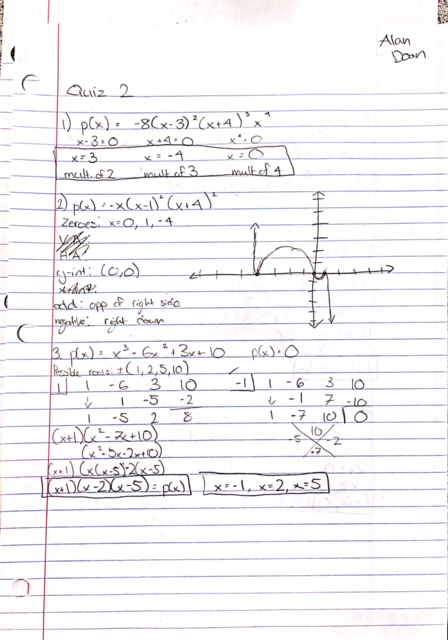 Alan
Doan
Quiz 2
1) p(x) = -8(x-3)²(x+4)³x⁴
x-3=0 x+4=0 x⁴=0
x=3 x=-4 x=0
mult. of 2 mult of 3 mult of 4
2) p(x)=-x(x-1)²(x+4)²
Zeroes: x=0, 1, -4
y-int: (0,0)
odd: opp of right side
negative: right down
3. p(x) = x³-6x²+3x+10 p(x)=0
Possible roots: ±(1,2,5,10)
1| 1 -6 3 10 -1| 1 -6 3 10
↓ 1 -5 -2 ↓ -1 7 -10
1 -5 2 8 1 -7 10 |0
(x+1)(x²-7x+10) 10
(x²-5x-2x+10) -5 -2
(x+1)(x(x-5)-2(x-5) -7
(x+1)(x-2)(x-5)=p(x) x=-1, x=2, x=5